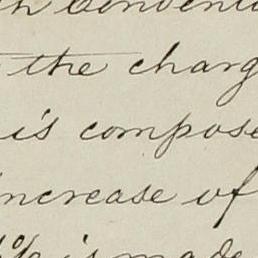 the charg
is compose
increase of
% is made